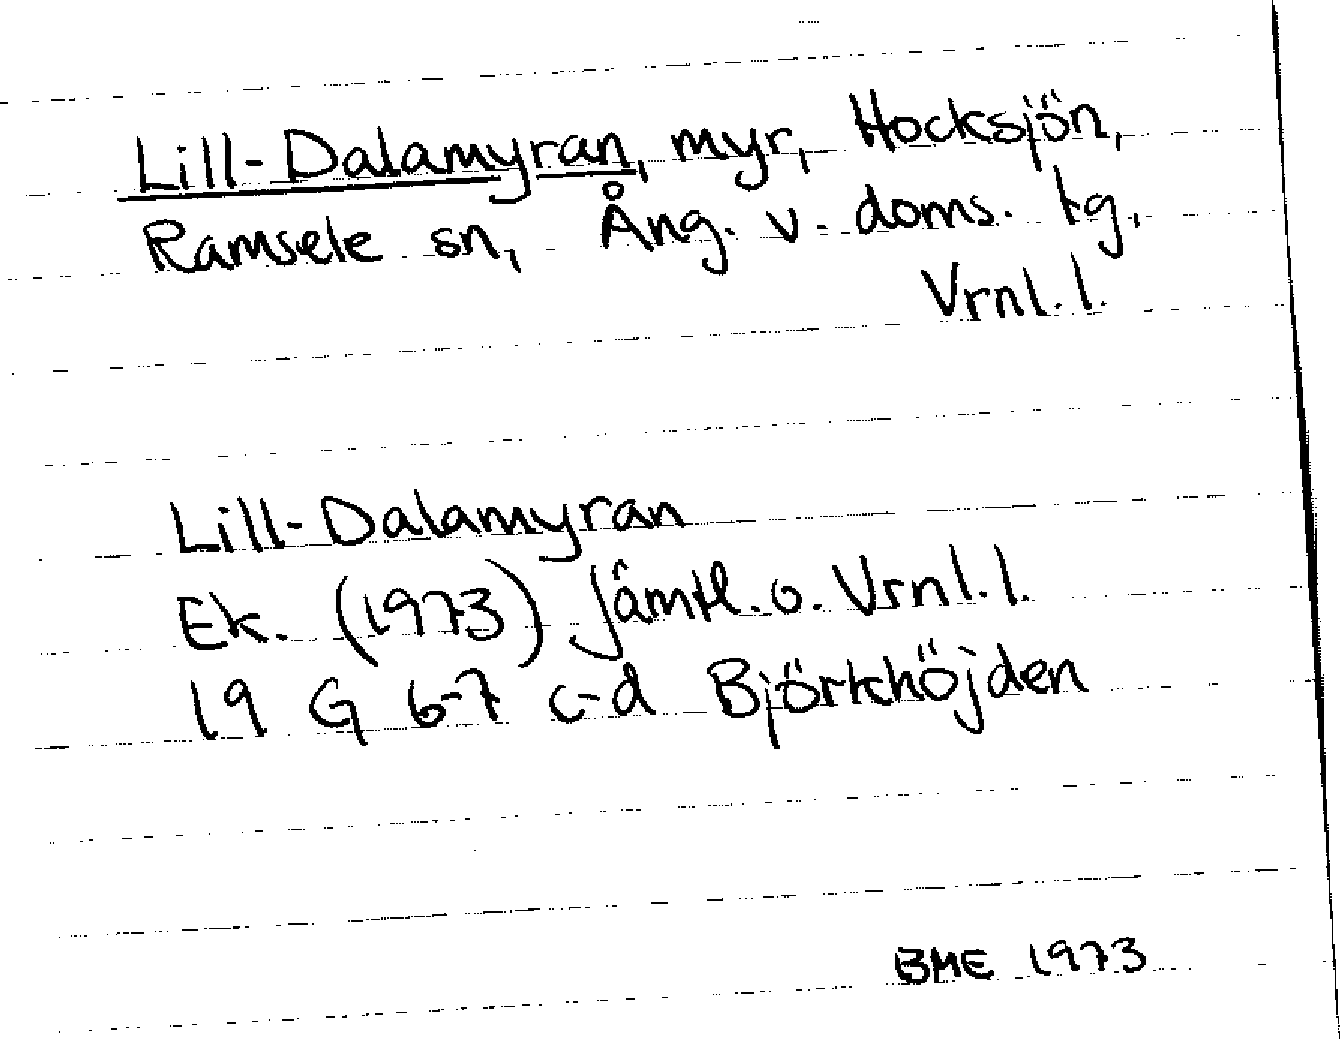 Lill-Dalamyran, myr, Hocksjön,
Ramsele sn, Ång. v. doms. tg,
Vrnl. l.
Lill-Dalamyran
Ek. (1973) Jämtl. o. Vsnl. l.
19 G 6-7 c-d Björkhöjden
BME 1973